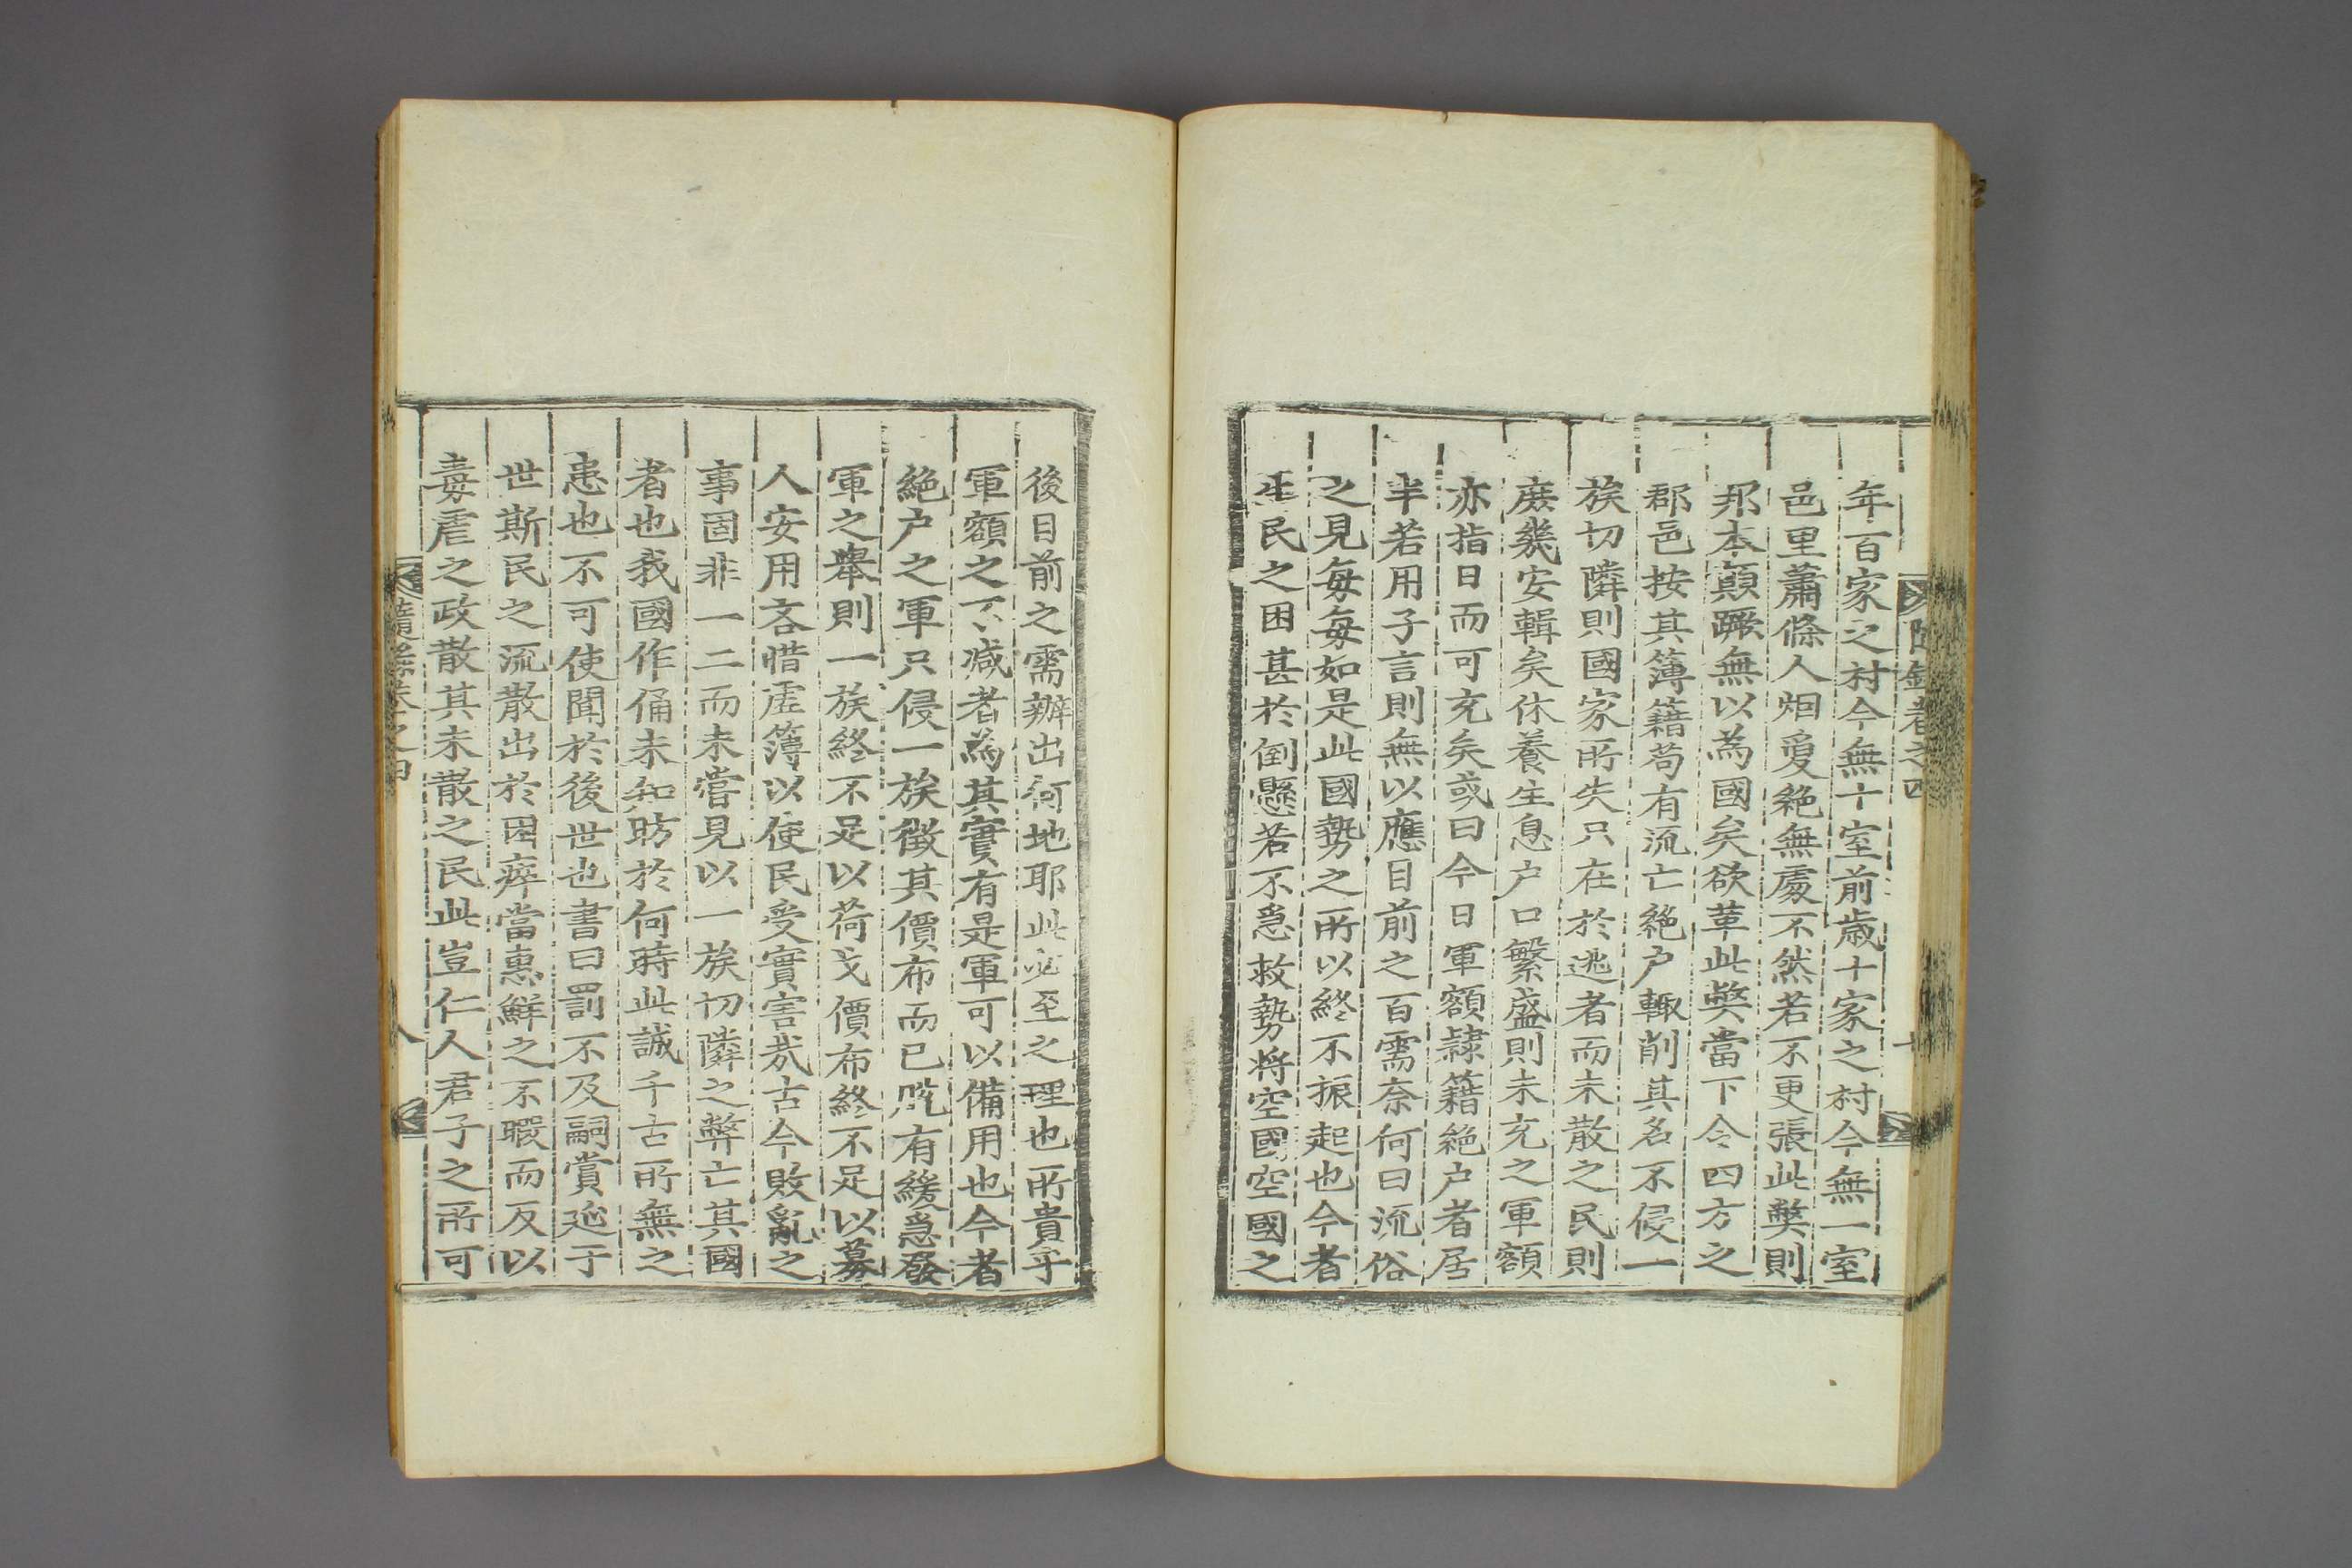 隨錄卷之四
年百家之村今無十室前歲十家之村今無一室
邑里蕭條人烟夐絶無處不然若不更張此獘則
邦本顛蹶無以為國矣欲革此獘當下令四方之
郡邑按其簿籍苟有流亡絶户輙削其名不侵一
族切隣則國家所失只在於逃者而未散之民則
庶幾安輯矣休養生息户口繁盛則未充之軍額
亦指日而可充矣或曰今日軍額隷籍絶户者居
半若用子言則無以應目前之百需奈何曰流俗
之見每每如是此國勢之所以終不振起也今者
生民之困甚於倒懸若不急救勢將空國空國之
後目前之需辦出何地耶此必至之理也所貴乎
軍額之不减者為其實有是軍可以備用也今者
絶户之軍只侵一族徵其價布而已脫有緩急發
軍之舉則一族終不足以荷戈價布終不足以募
人安用吝惜虛簿以使民受實害㢤古今敗亂之
事固非一二而未嘗見以一族切隣之弊亡其國
者也我國作俑未知昉於何時此誠千古所無之
患也不可使聞於後世也書曰罰不及嗣賞延于
世斯民之流散出於困瘁當惠鮮之不暇而反以
毒虐之政散其未散之民此豈仁人君子之所可
隨錄卷之四
八